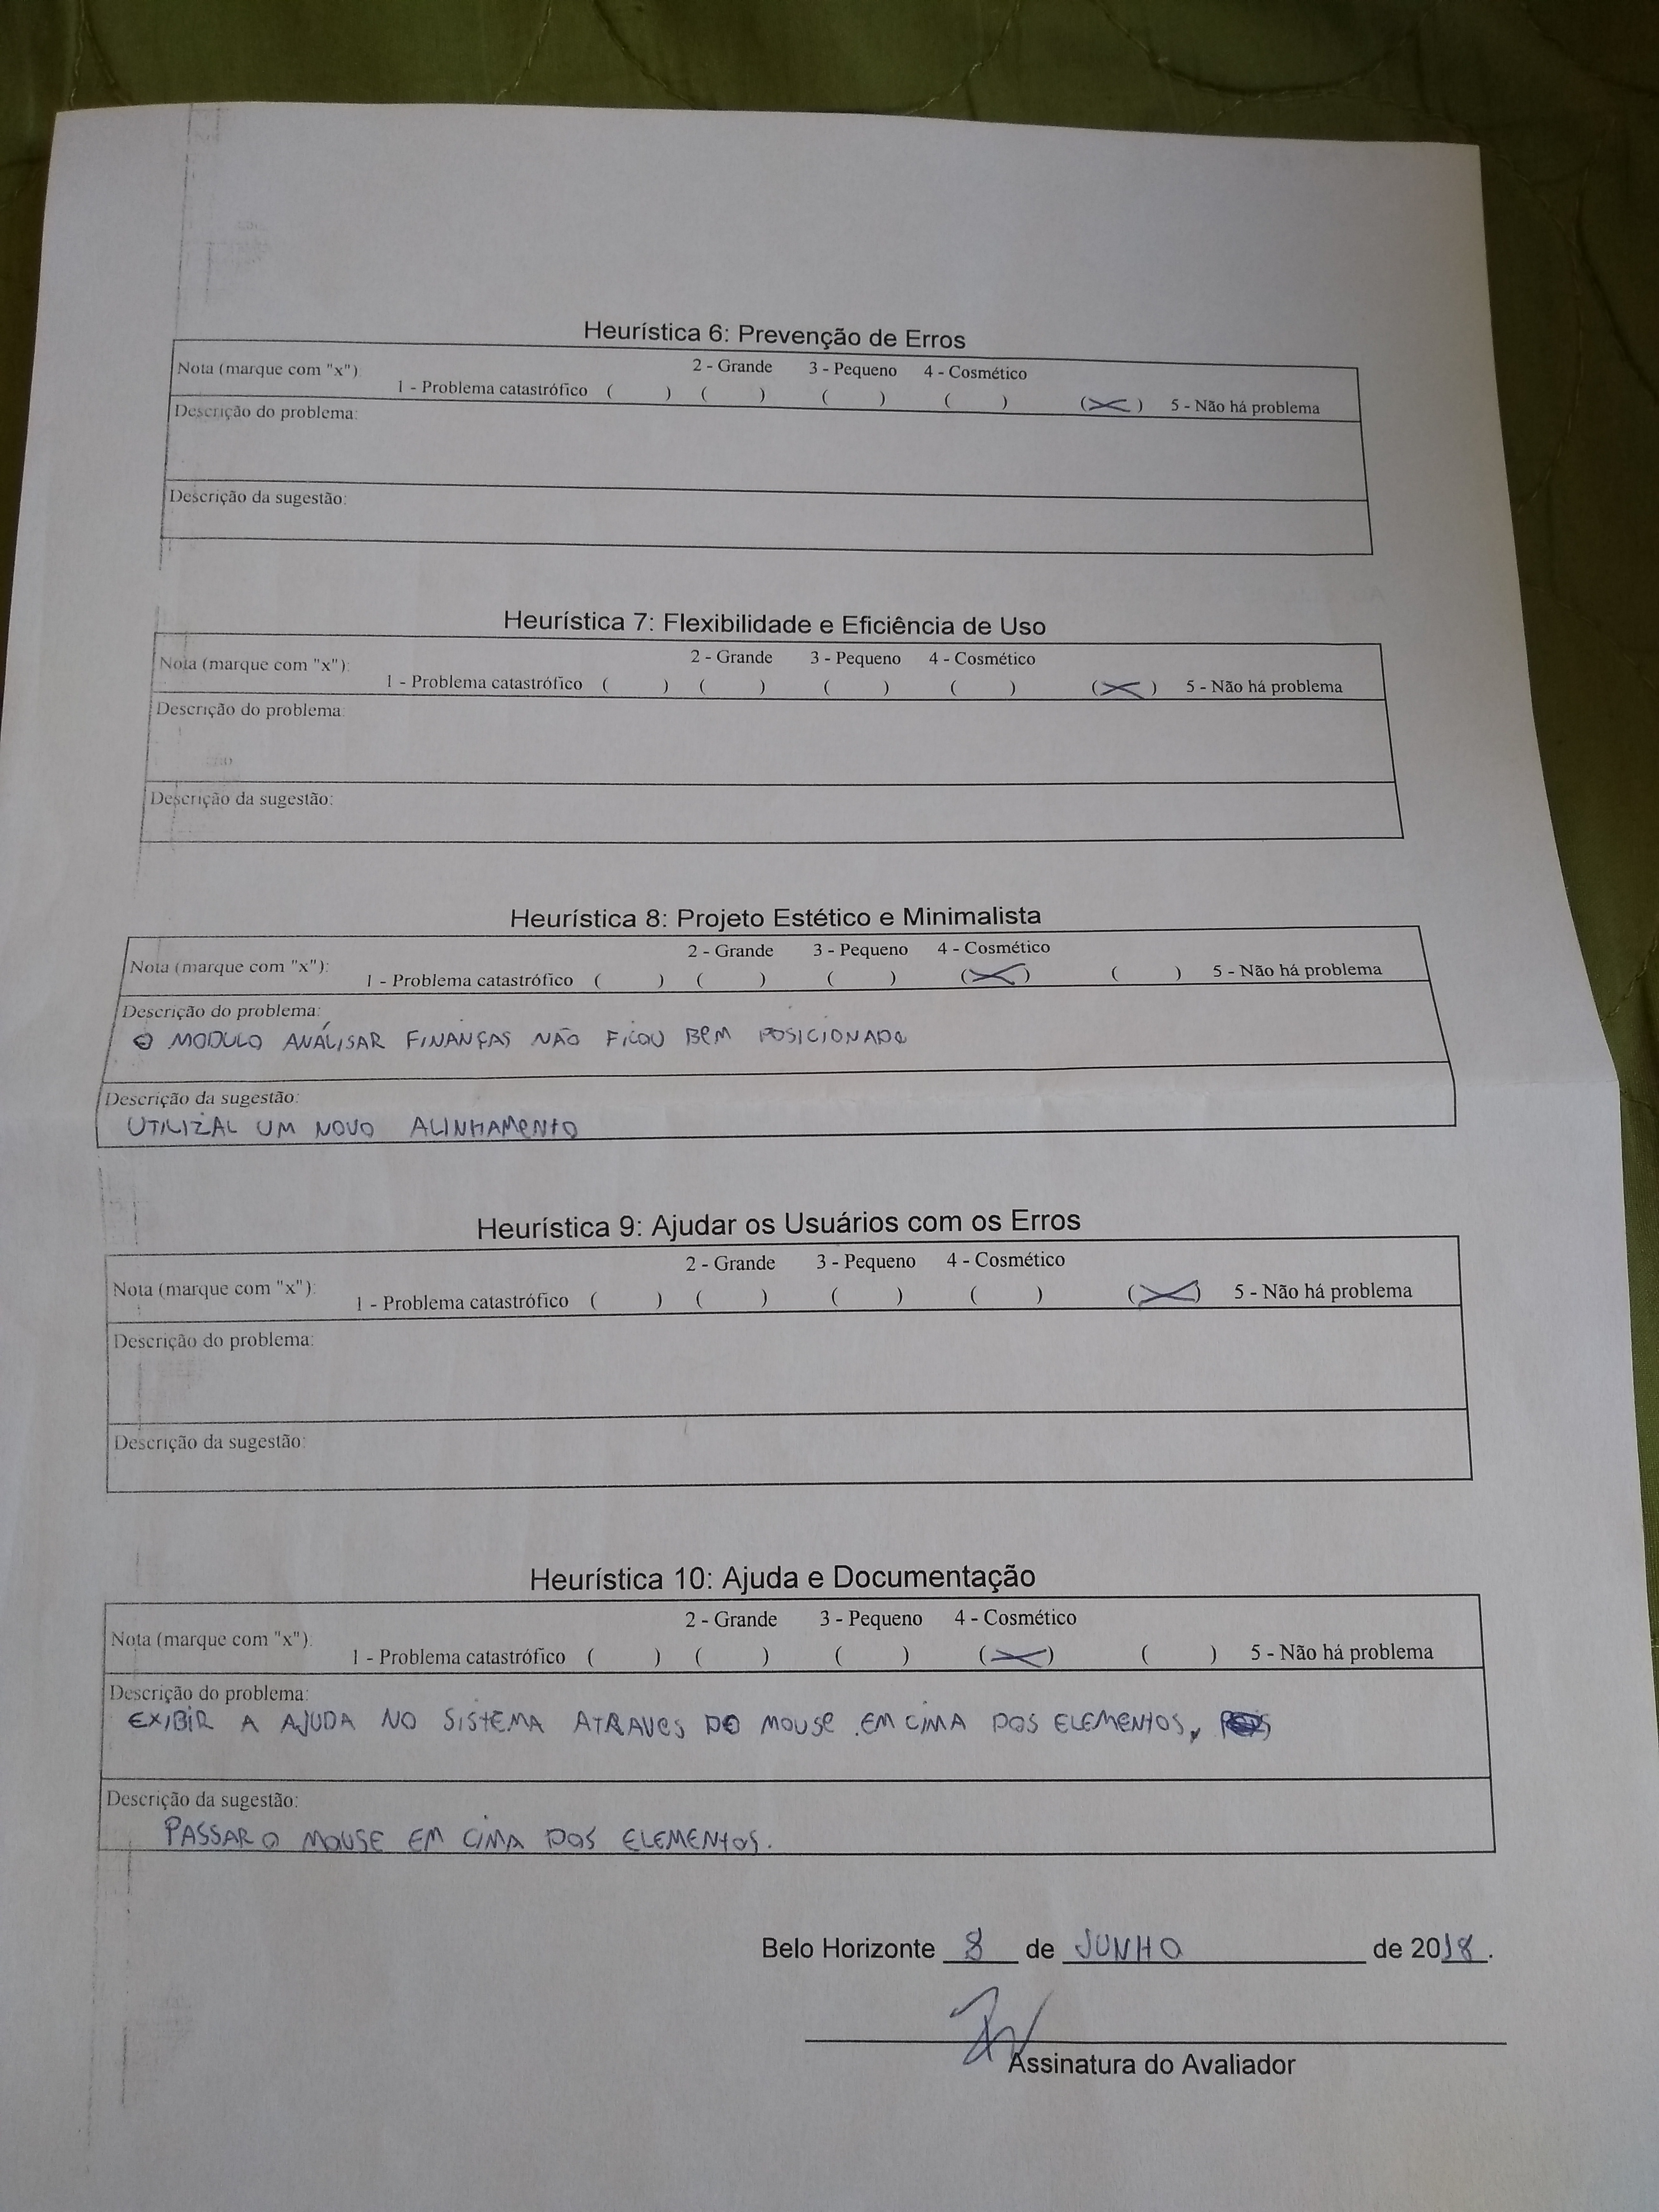 Heurística 6: Prevenção de Erros
Nota (marque com "x"): 1 - Problema catastrófico ( ) 2 - Grande ( ) 3 - Pequeno ( ) 4 - Cosmético ( ) (X) 5 - Não há problema
Descrição do problema:
Descrição da sugestão:
Heurística 7: Flexibilidade e Eficiência de Uso
Nota (marque com "x"): 1 - Problema catastrófico ( ) 2 - Grande ( ) 3 - Pequeno ( ) 4 - Cosmético ( ) (X) 5 - Não há problema
Descrição do problema
Descrição da sugestão:
Heurística 8: Projeto Estético e Minimalista
Nota (marque com "x"): 1 - Problema catastrófico ( ) 2 - Grande ( ) 3 - Pequeno ( ) 4 - Cosmético (X) ( ) 5 - Não há problema
Descrição do problema:
O MODULO ANÁLISAR FINANÇAS NÃO FICOU BEM POSICIONADO
Descrição da sugestão:
UTILIZAL UM NOVO ALINHAMENTO
Heurística 9: Ajudar os Usuários com os Erros
Nota (marque com "x"): 1 - Problema catastrófico ( ) 2 - Grande ( ) 3 - Pequeno ( ) 4 - Cosmético ( ) (X) 5 - Não há problema
Descrição do problema:
Descrição da sugestão:
Heurística 10: Ajuda e Documentação
Nota (marque com "x"). 1 - Problema catastrófico ( ) 2 - Grande ( ) 3 - Pequeno ( ) 4 - Cosmético (X) ( ) 5 - Não há problema
Descrição do problema:
EXIBIR A AJUDA NO SISTEMA ATRAVES DO MOUSE EM CIMA DOS ELEMENTOS,
Descrição da sugestão:
PASSAR O MOUSE EM CIMA DOS ELEMENTOS.
Belo Horizonte 8 de JUNHO de 2018.
Assinatura do Avaliador